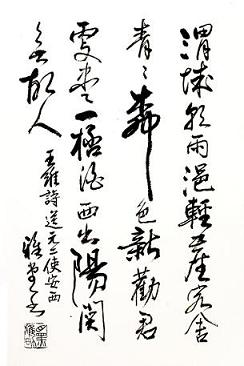 渭城朝雨浥輕塵客舍
青々柳色新勸君
更盡一杯酒西出陽関
無故人
王維詩送元二使安西